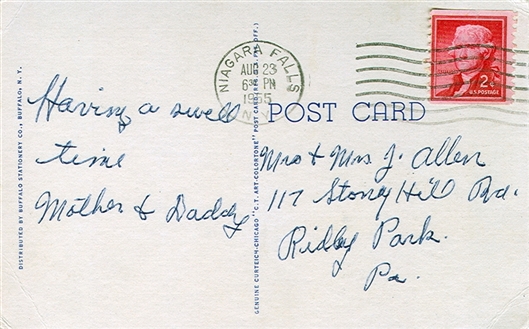 DISTRIBUTED BY BUFFALO STATIONERY CO., BUFFALO, N. Y.
Having a swell
time
Mother & Daddy
GENUINE CURTEICH-CHICAGO "C.T. ART-COLORTONE" POST CARD (REG. U.S. PAT. OFF.)
NIAGARA FALLS
AUG 23
6 30 PM
1955
N.Y.
2¢
U.S. POSTAGE
POST CARD
Mr & Mrs J. Allen
117 Stoney Hill Rd.
Ridley Park.
Pa.